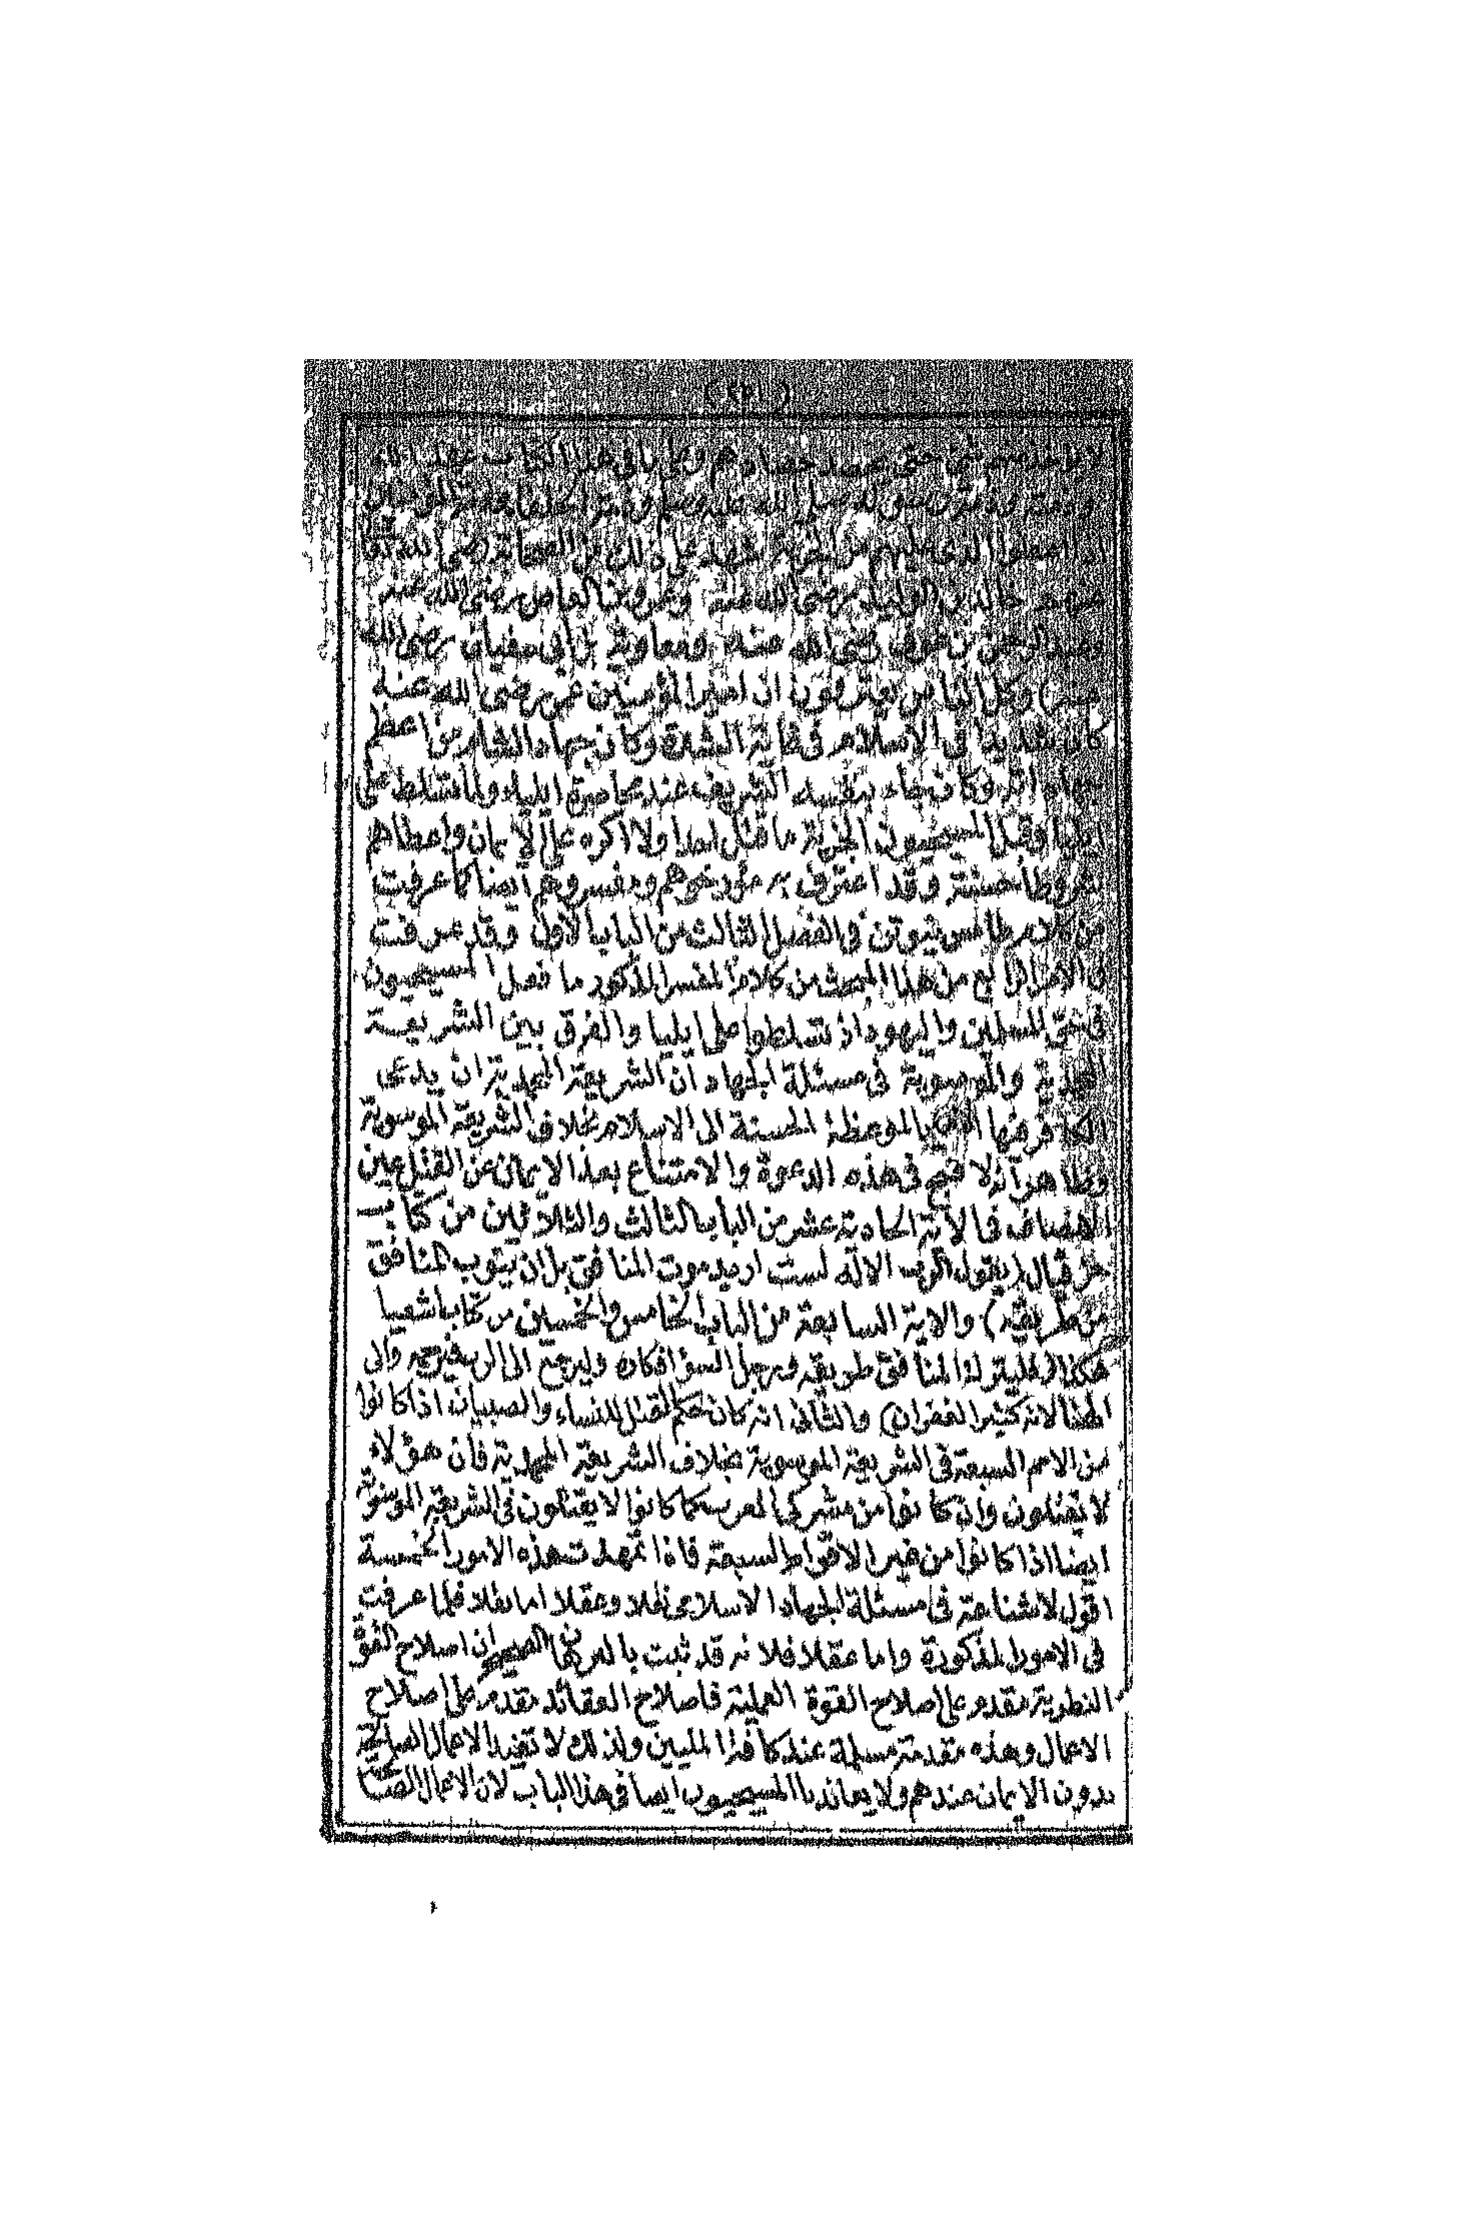 لا يؤخذ منهم شئ حتى يحصد حصادهم وعلى ما فى هذا الكتاب عهد الله
وذمته وذمة رسوله صلى الله عليه وسلم وذمة الخلفاء وذمة المؤمنين
اذا اعطوا الذى عليهم من الجزية شهد على ذلك من الصحابة رضى الله تعالى
عنهم خالد بن الوليد رضى الله عنه وعمرو بن العاص رضى الله عنه
وعبد الرحمن بن عوف رضى الله عنه ومعاوية بن ابى سفيان رضى الله
عنه) وكل الناس يعترفون ان امير المؤمنين عمر رضى الله عنه
كان شديدا فى الاسلام فى غاية الشدة وكان جهاد الشام من اعظم
جهاداته وكان جاء بنفسه الشريف عند محاصرة ايليا ولما تسلط على
ايليا وقبل المسيحيون الجزية ما قتل احدا ولا اكره على الايمان واعطاهم
شروطا حسنة وقد اعترف به مؤرخوهم ومفسروهم ايضا كما عرفت
من كلام طامس نيوتن فى الفصل الثالث من الباب الاول وقد عرفت
فى الامر الرابع من هذا المبحث من كلام المفسر المذكور ما فعل المسيحيون
فى حق المسلمين واليهود اذ تسلطوا على ايليا والفرق بين الشريعة
المحمدية والموسوية فى مسئلة الجهاد ان الشريعة المحمدية ان يدعى
الكافر فيها اولا بالموعظة الحسنة الى الاسلام بخلاف الشريعة الموسوية
وظاهر انه لا قبح فى هذه الدعوة والامتناع بعد الايمان عن القتل عين
الانصاف فى الاية الحادية عشر من الباب الثالث والثلاثين من كتاب
حزقيال (يقول الرب الاله لست اريد موت المنافق بل ان يتوب المنافق
من طريقه) والاية السابعة من الباب الخامس والخمسين من كتاب اشعيا
هكذا (فليترك المنافق طريقه ورجل السؤ افكاره وليرجع الى الرب فيرحمه والى
الهنا لانه كثير الغفران) والثانى انه كان حكم القتل للنساء والصبيان اذا كانوا
من الامم السبعة فى الشريعة الموسوية بخلاف الشريعة المحمدية فان هؤلاء
لا يقتلون وان كانوا من مشركى العرب كما كانوا لا يقتلون فى الشريعة الموسوية
ايضا اذا كانوا من غير الاقوام السبعة فاذا تمهدت هذه الامور الخمسة
اقول لا شناعة فى مسئلة الجهاد الاسلامى نقلا وعقلا اما نقلا فلما عرفت
فى الامور المذكورة واما عقلا فلانه قد ثبت بالبرهان الصحيح ان اصلاح القوة
النظرية مقدم على اصلاح القوة العملية فاصلاح العقائد مقدم على اصلاح
الاعمال وهذه مقدمة مسلمة عند كافة المليين ولذلك لا تفيد الاعمال الصالحة
بدون الايمان عندهم ولا يعاندنا المسيحيون ايضا فى هذا الباب لان الاعمال الصالحة